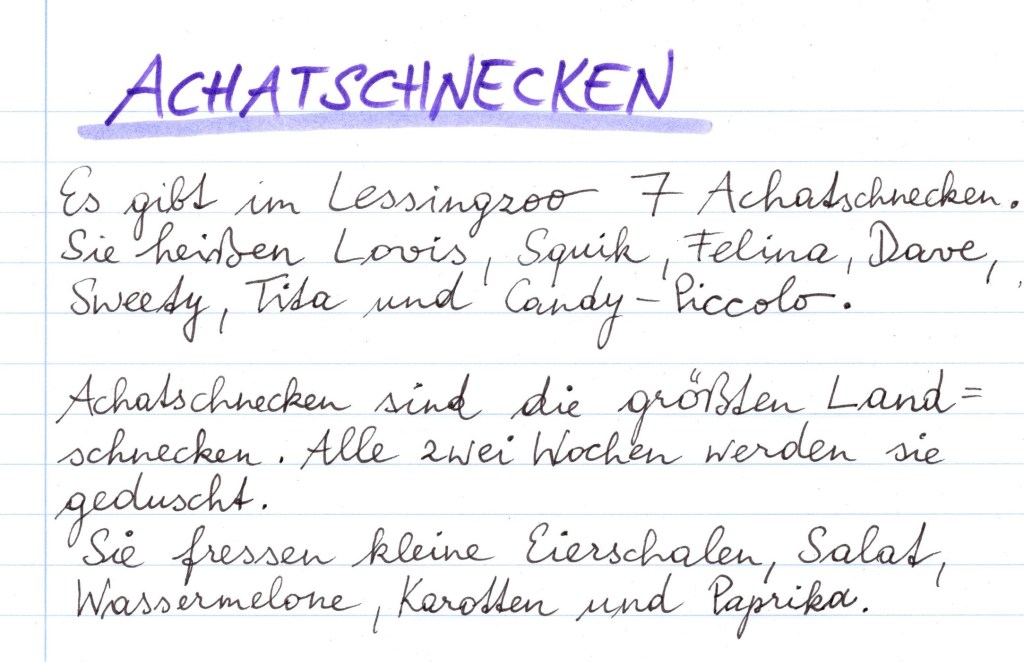 ACHATSCHNECKEN
Es gibt im Lessingzoo 7 Achatschnecken.
Sie heißen Lovis, Squik, Felina, Dave,
Sweety, Tita und Candy-Piccolo.
Achatschnecken sind die größten Land=
schnecken. Alle zwei Wochen werden sie
geduscht.
Sie fressen kleine Eierschalen, Salat,
Wassermelone, Karotten und Paprika.